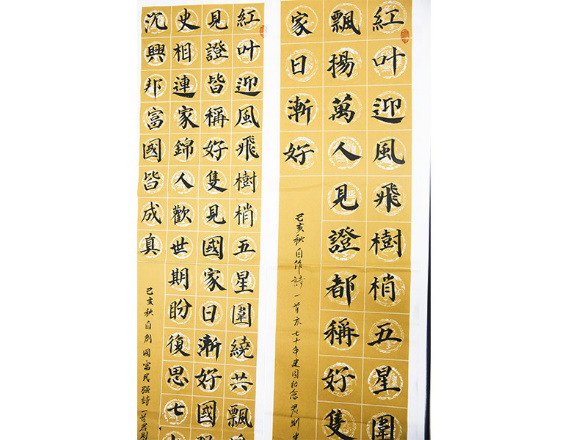 紅叶迎風飛樹梢五星圍
飄揚萬人見證都稱好隻
家日漸好
己亥秋自作詩一首
七十年建國紀念
紅叶迎風飛樹梢五星圍繞共飄
見證皆稱好隻見國家日漸好國
史相連家錦人歡世期盼復思七
沈興邦富國皆成真
己亥秋自創國富民強詩一首